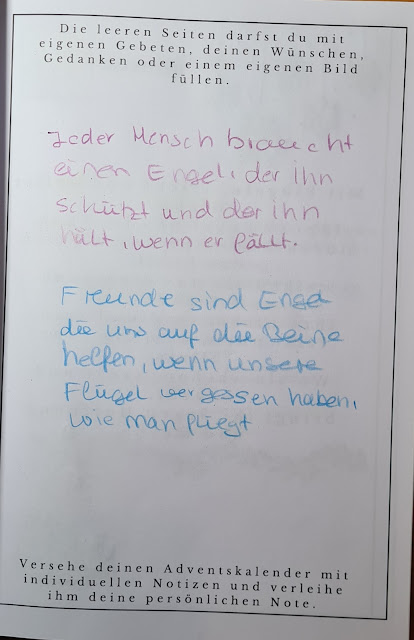 Die leeren Seiten darfst du mit
eigenen Gebeten, deinen Wünschen,
Gedanken oder einem eigenen Bild
füllen.
Jeder Mensch braucht
einen Engel, der ihn
schützt und der ihn
hält, wenn er fällt.
Freunde sind Engel
die uns auf die Beine
helfen, wenn unsere
Flügel vergessen haben,
wie man fliegt
Versehe deinen Adventskalender mit
individuellen Notizen und verleihe
ihm deine persönlichen Note.